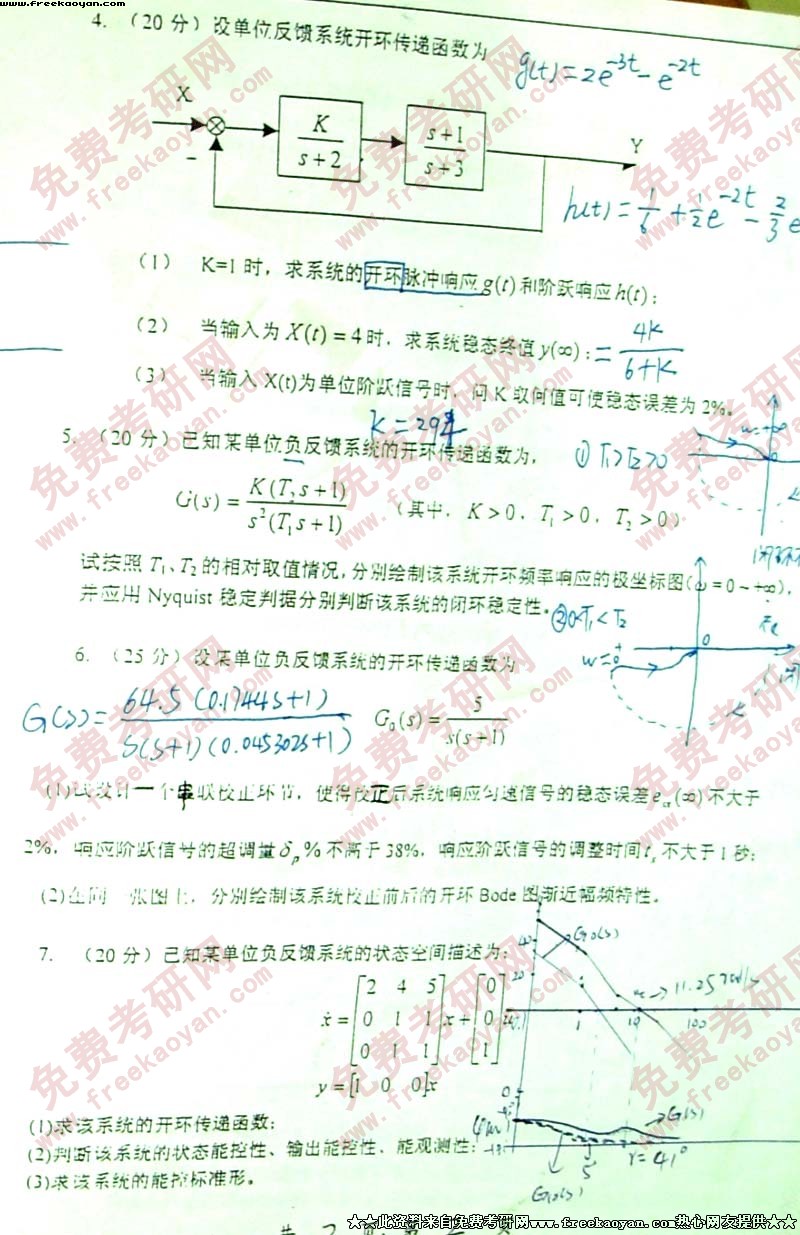 www.freekaoyan.com
4. （20 分）设单位反馈系统开环传递函数为
g(t)=2e^{-3t}-e^{-2t}
X
K/(s+2)
(s+1)/(s+3)
Y
−
h(t)=1/6+1/2e^{-2t}-2/3e
（1） K=1 时，求系统的开环脉冲响应 g(t) 和阶跃响应 h(t)；
（2） 当输入为 X(t)=4 时，求系统稳态终值 y(∞)； =4K/(6+K)
（3） 当输入 X(t)为单位阶跃信号时，问 K 取何值可使稳态误差为 2%。
K=294
5. （20 分）已知某单位负反馈系统的开环传递函数为，
① T₁>T₂>0
G(s)=K(T₂s+1)/(s²(T₁s+1)) （其中，K>0，T₁>0，T₂>0）
试按照 T₁、T₂ 的相对取值情况，分别绘制该系统开环频率响应的极坐标图(ω=0~+∞)，
并应用 Nyquist 稳定判据分别判断该系统的闭环稳定性。
②0<T₁<T₂
6. （25 分）设某单位负反馈系统的开环传递函数为
G(s)=64.5(0.1744s+1)/(s(s+1)(0.045302s+1))
G₀(s)=5/(s(s+1))
(1)试设计一个串联校正环节，使得校正后系统响应匀速信号的稳态误差 e_{sr}(∞)不大于
2%，响应阶跃信号的超调量 δ_p%不高于 38%，响应阶跃信号的调整时间 t_s 不大于 1 秒；
(2)在同一张图上，分别绘制该系统校正前后的开环 Bode 图渐近幅频特性。
7. （20 分）已知某单位负反馈系统的状态空间描述为：
ẋ=[2 4 5; 0 1 1; 0 1 1]x+[0; 0; 1]u
y=[1 0 0]x
G₀(s)
40
20
1
10
100
(1)求该系统的开环传递函数；
(2)判断该系统的状态能控性、输出能控性、能观测性；
(3)求该系统的能控标准形。
G(s)
5
r=41°
G₀(s)
★★此资料来自免费考研网www.freekaoyan.com热心网友提供★★
免费考研网
www.freekaoyan.com